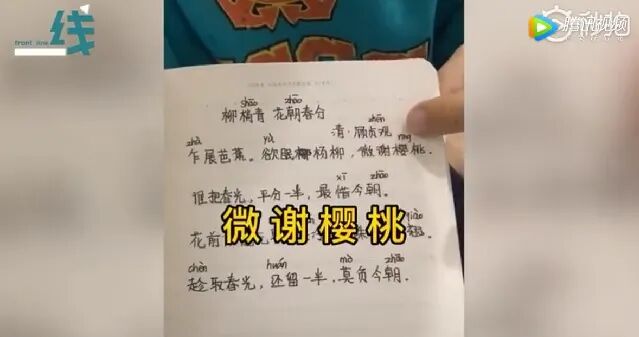 线
front line
腾讯视频
shāo zhāo
柳梢青 花朝春分
zhēn
清·顾贞观
zhà yù yīng
乍展芭蕉。欲眠杨柳,微谢樱桃。
xī zhāo
谁把春光,平分一半,最惜今朝。
花前
微谢樱桃
chèn huán mò zhāo
趁取春光,还留一半,莫负今朝。